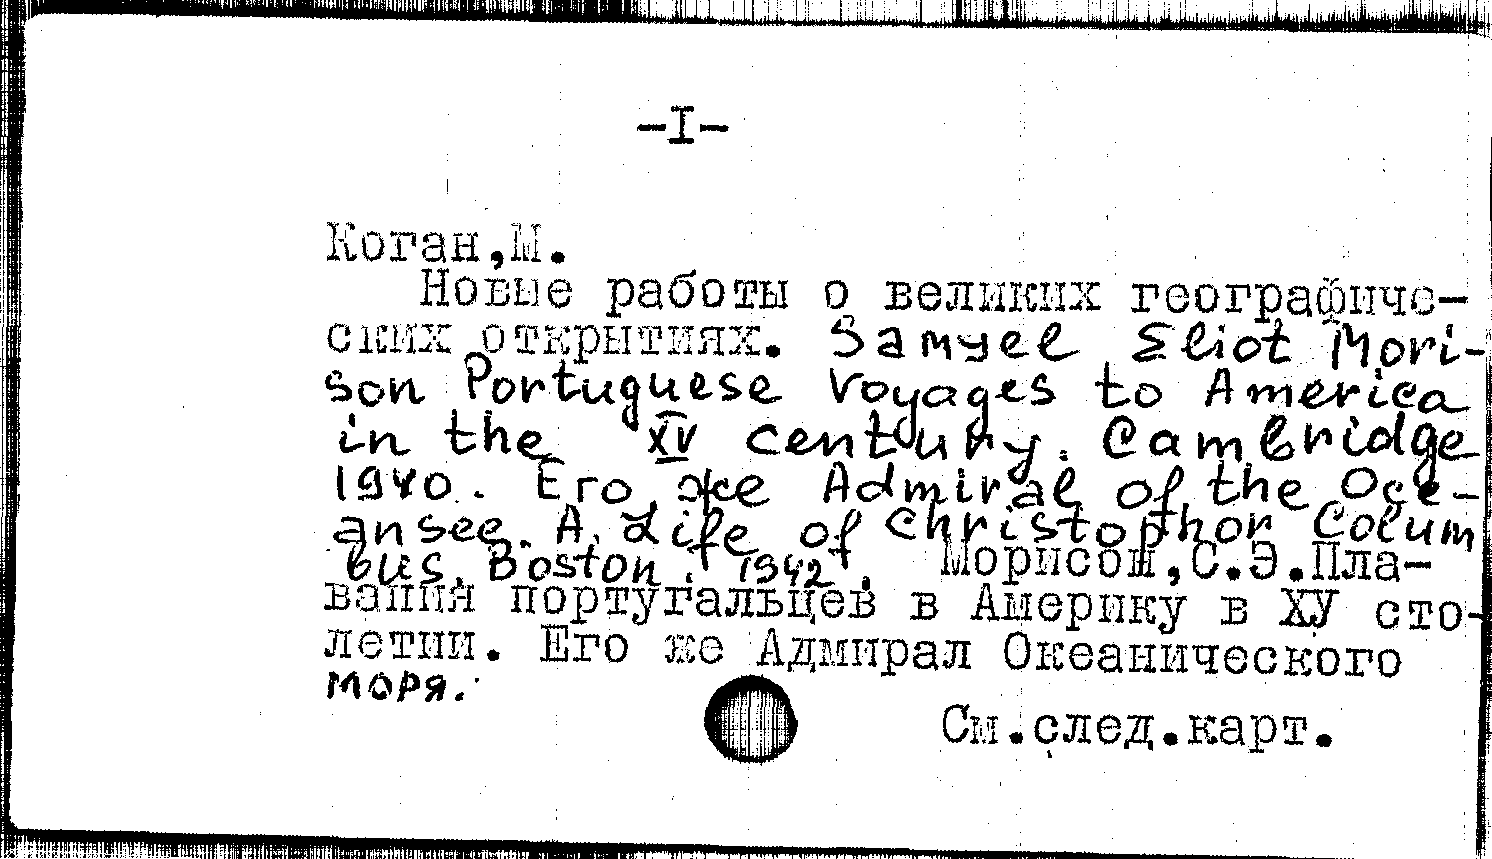 -I-
Коган,М.
Новые работы о великих географиче-
ских открытиях. Samyel Eliot Mori-
son Portuguese Voyages to America
in the XV century. Cambridge
1940. Его же Admiral of the Oce-
ansee. A. Life of Christophor Colum
bus. Boston. 1942. Морисон,С.Э.Пла-
вания португальцев в Америку в ХУ сто-
летии. Его же Адмирал Океанического
моря.
См.след.карт.